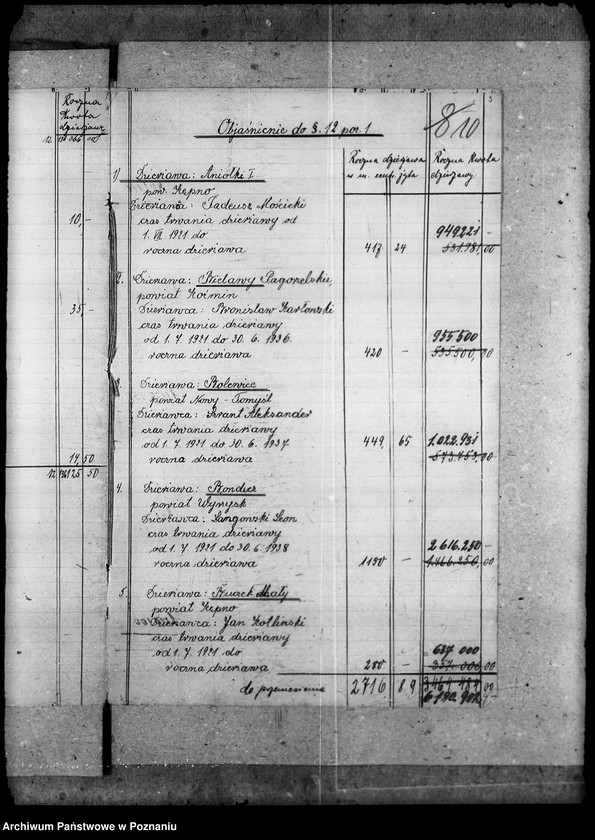 Roczna
Kwota
dzierżawy
10,-
35,-
14,50
12 136125 50
3
810
Objaśnienie do §. 12 poz. 1
Roczna dzierżawa
w m. cent. żyta
Roczna Kwota
dzierżawy
1) Dzierżawa: Aniołki I.
pow. Kępno
Dzierżawca: Tadeusz Mościcki
czas trwania dzierżawy od
1. VII 1921 do
949221 -
roczna dzierżawa 417 24 531.981,00
2. Dzierżawa: Bielawy Pagorzelskie,
powiat Koźmin
Dzierżawca: Bronisław Karłowski
czas trwania dzierżawy
od 1. 7. 1921 do 30. 6. 1936.
955500
roczna dzierżawa 420 - 535500,00
3. Dzierżawa: Bolewice
powiat Nowy-Tomyśl
Dzierżawca: Brant Aleksander
czas trwania dzierżawy
od 1. 7. 1921 do 30. 6. 1937
1.022.931
roczna dzierżawa 449, 65 573.453,00
4. Dzierżawa: Bondecz
powiat Wyrzysk
Dzierżawca: Langowski Leon
czas trwania dzierżawy
od 1. 7. 1921 do 30. 6. 1938
2 616.250 -
roczna dzierżawa 1150 - 1.466.250,00
5. Dzierżawa: Buzek Mały
powiat Kępno
Dzierżawca: Jan Kotliński
czas trwania dzierżawy
od 1. 7. 1921 do
637 000
roczna dzierżawa 280 - 357.000,00
do przeniesienia 2716 89 3464 484 00
6 180.902
Archiwum Państwowe w Poznaniu